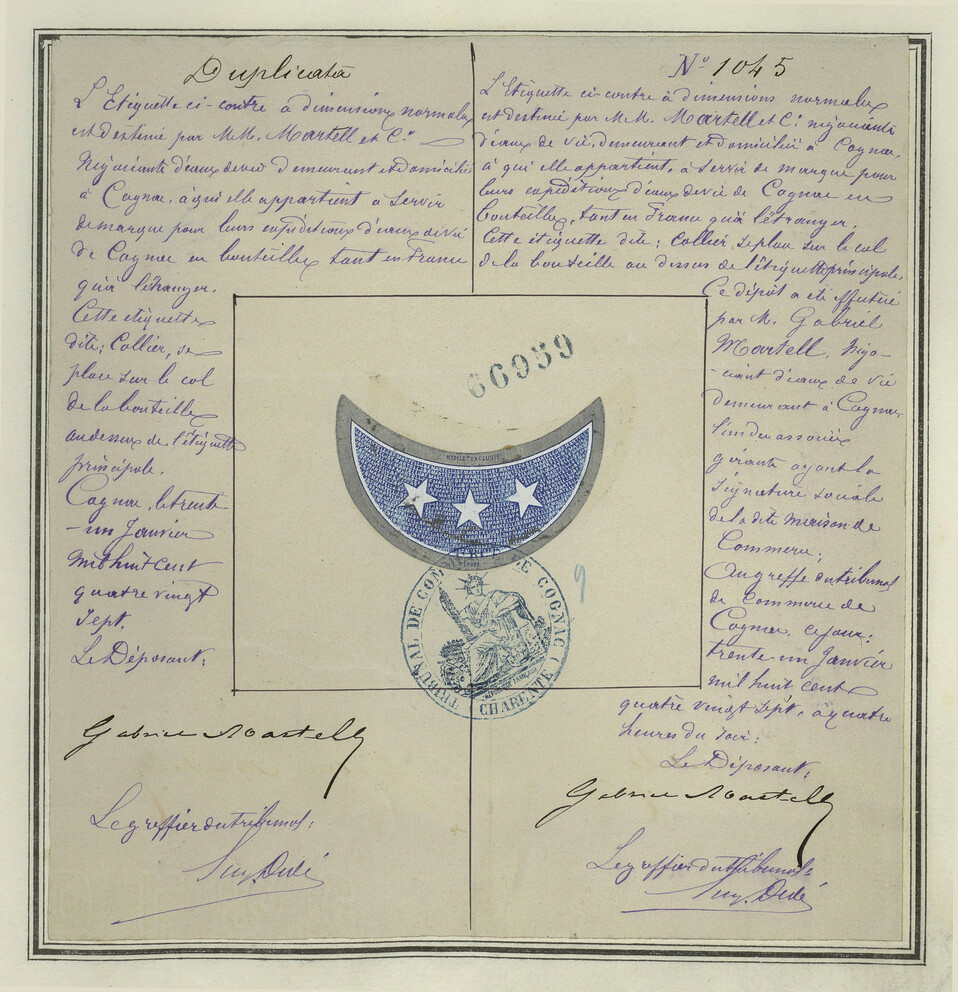 Duplicata
L'Etiquette ci-contre à dimensions normales
est destiné par M.M. Martell et Cie
Négociants d'eaux de vie demeurant et domiciliés
à Cognac, à qui elle appartient à servir
de marque pour leurs expéditions d'eaux de vie
de Cognac en bouteilles tant en France
qu'à l'étranger.
Cette étiquette
dite: Collier, se
place sur le col
de la bouteille
au dessus de l'étiquette
principale.
Cognac, le trente
-un Janvier
mil huit cent
quatre vingt
sept.
Le Déposant:
Gabriel Martell
Le greffier du tribunal:
No 1045
L'Etiquette ci-contre à dimensions normales
est destiné par M.M. Martell et Cie négociants
d'eaux de vie, demeurant et domiciliés à Cognac,
à qui elle appartient, à servir de marque pour
leurs expéditions d'eaux de vie de Cognac en
bouteilles, tant en France qu'à l'étranger.
Cette étiquette dite: Collier, se place sur le col
de la bouteille au dessus de l'étiquette principale.
Ce dépôt a été effectué
par M. Gabriel
Martell, Négo-
-ciant d'eaux de vie
demeurant à Cognac,
l'un des associés
gérants ayant la
signature sociale
de la dite maison de
Commerce;
Au greffe du tribunal
de Commerce de
Cognac, ce jour:
trente un Janvier
mil huit cent
quatre vingt sept, à quatre
heures du soir:
Le Déposant:
Gabriel Martell
Le greffier du tribunal:
66959
MODÈLE EXCLUSIF
MARTELL
DÉPOSÉ
9
TRIBUNAL DE COMMERCE DE COGNAC (CHARENTE)